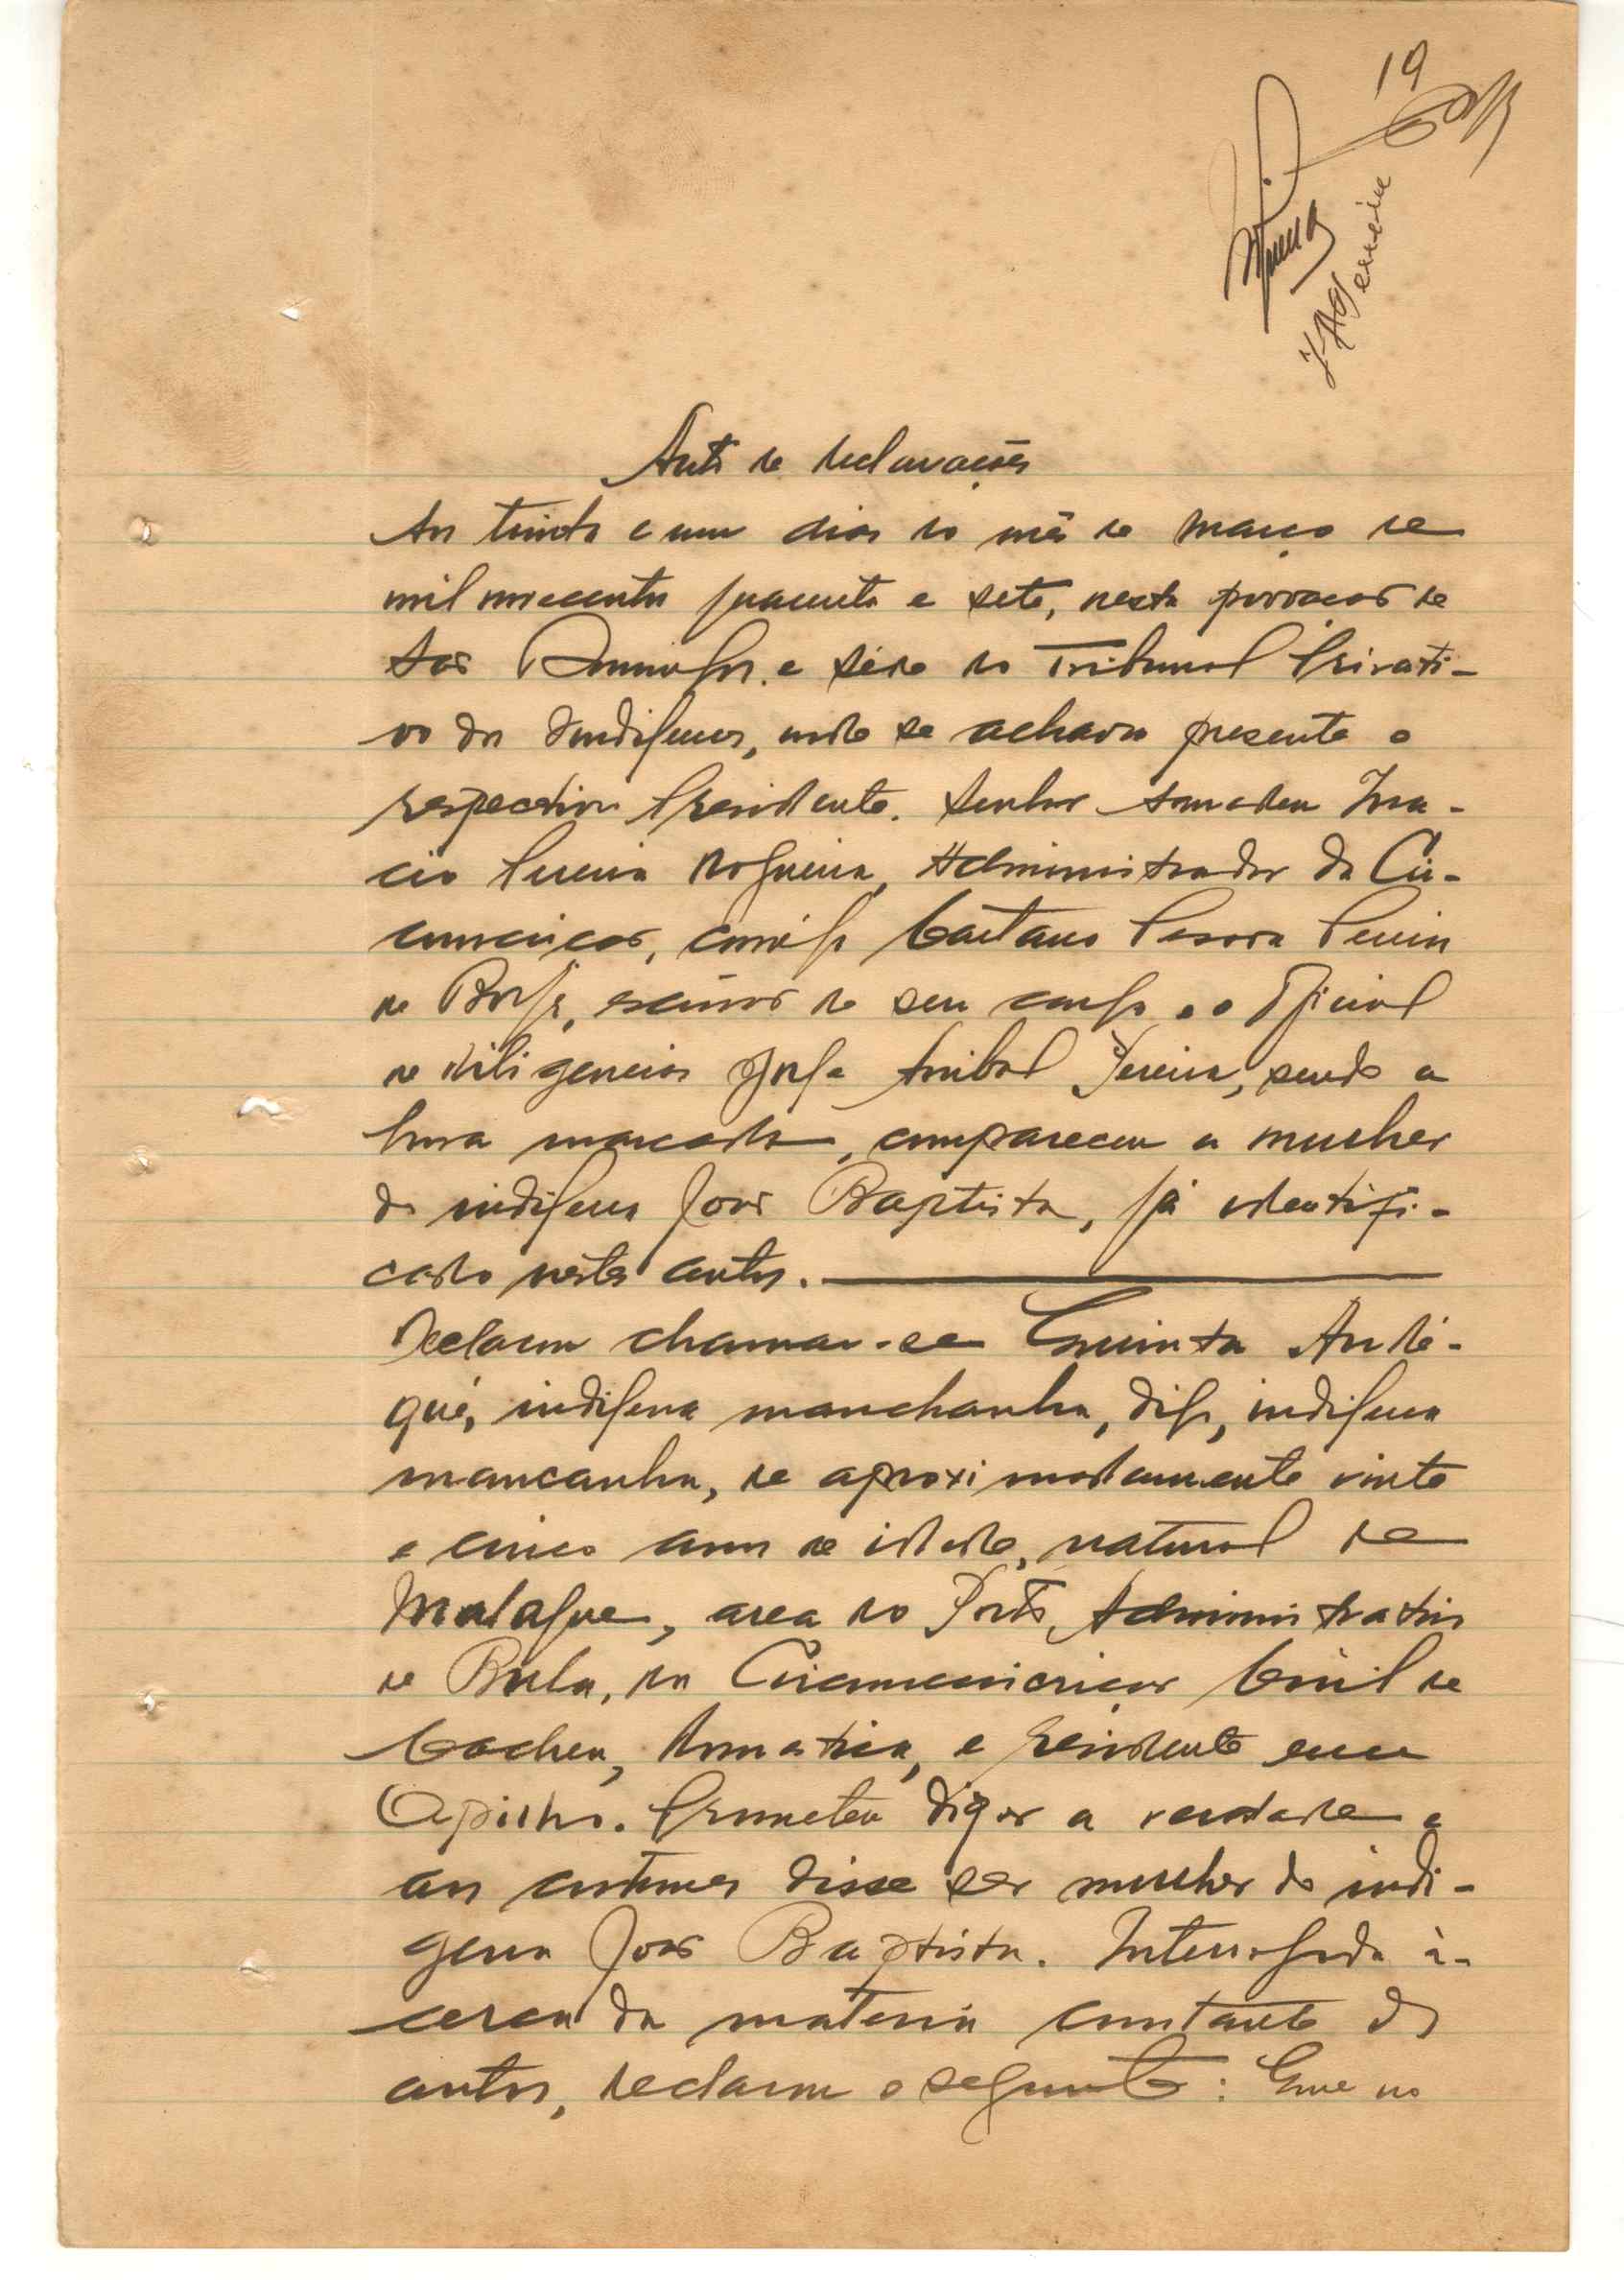 19
JAFerreira
Auto de declarações
Aos trinta e um dias do mês de Março de
mil novecentos quarenta e sete, nesta povoação de
São Domingos, e séde do Tribunal Privati-
vo dos Indigenas, onde se achava presente o
respectivo Presidente, Senhor Amadeu Ina-
cio Pereira Nogueira, Administrador da Cir-
cunscrição, comigo Caetano Pessoa Pereira
de Borja, escrivão do seu cargo e o Oficial
de diligencias Jorge Anibal Ferreira, sendo a
hora marcada, compareceu a mulher
do indigena João Baptista, já identifi-
cado nestes autos.
Declarou chamar-se Quinta Andé-
qué, indigena manchanha, digo, indigena
mancanha, de aproximadamente vinte
e cinco anos de idade, natural de
Matague, area do Posto Administrativo
de Bula, da Circunscrição Civil de
Cacheu, domestica, e residente em
Apilho. Prometeu dizer a verdade e
aos costumes disse ser mulher do indi-
gena João Baptista. Interrogada à-
cerca da materia constante dos
autos, declarou o seguinte: Que no